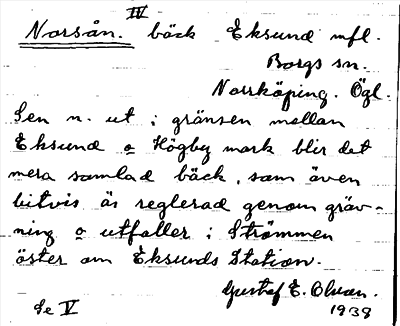 IV
Norsån. bäck Eksund mfl.
Borgs sn.
Norrköping. Ögl.
Sen n. ut i gränsen mellan
Eksund o Högby mark blir det
mera samlad bäck, som även
bitvis är reglerad genom gräv-
ning o utfaller i Strömmen
öster om Eksunds Station.
Gustaf E. Olsson.
Se V 1938